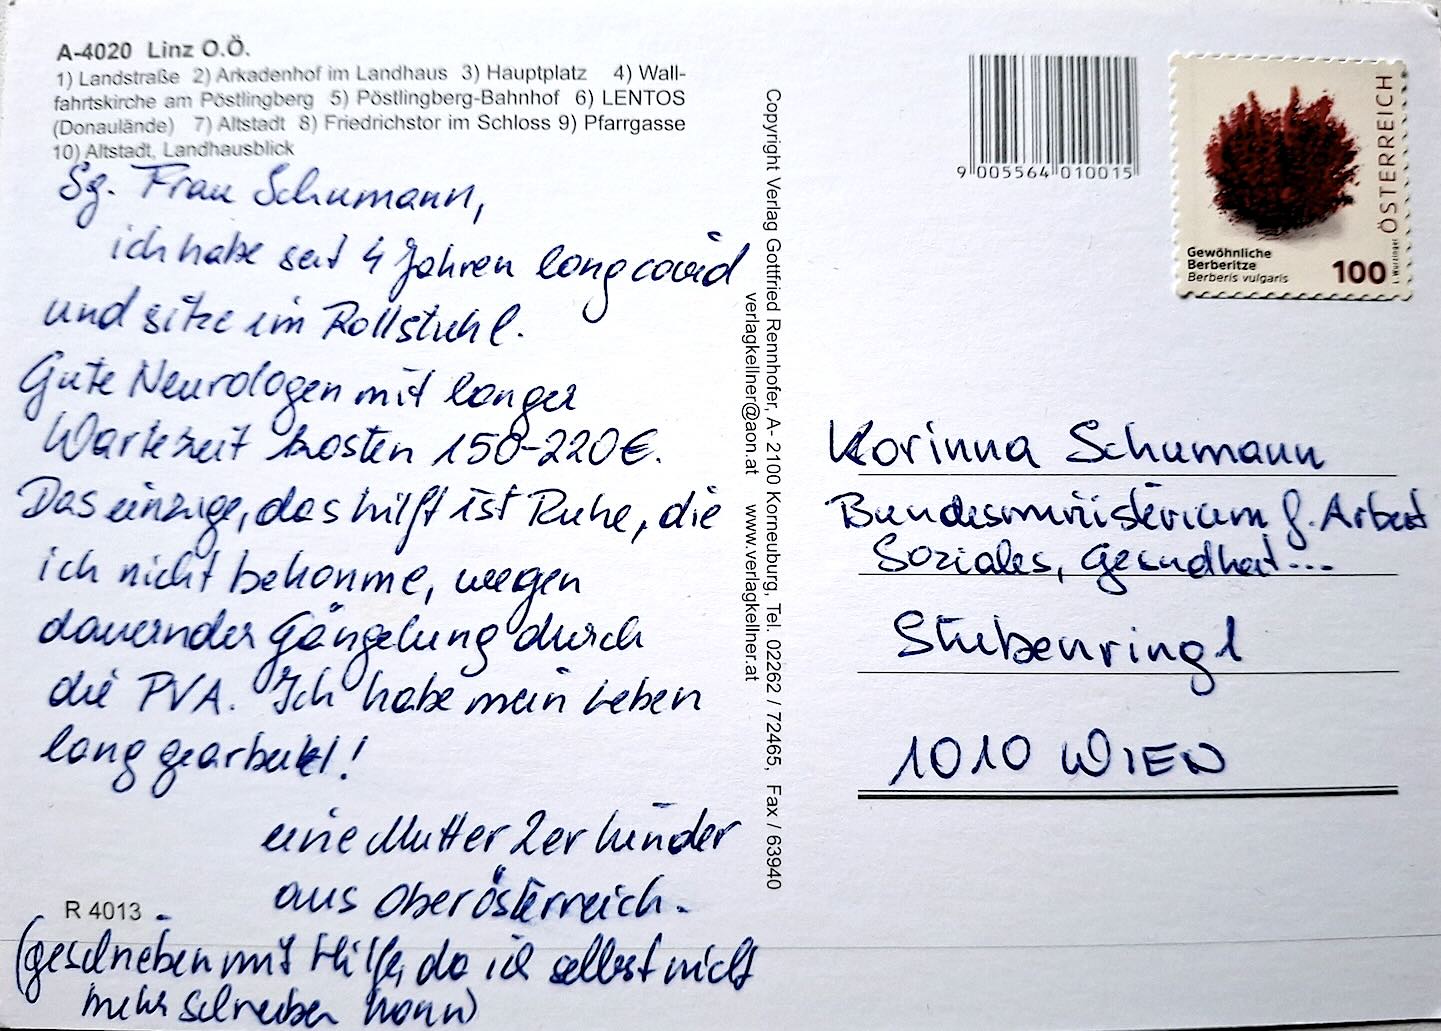 A-4020 Linz O.Ö.
1) Landstraße 2) Arkadenhof im Landhaus 3) Hauptplatz 4) Wall-
fahrtskirche am Pöstlingberg 5) Pöstlingberg-Bahnhof 6) LENTOS
(Donaulände) 7) Altstadt 8) Friedrichstor im Schloss 9) Pfarrgasse
10) Altstadt, Landhausblick
Sg. Frau Schumann,
ich habe seit 4 Jahren long covid
und sitze im Rollstuhl.
Gute Neurologen mit langer
Wartezeit kosten 150-220€.
Das einzige, das hilft ist Ruhe, die
ich nicht bekomme, wegen
dauernder Gängelung durch
die PVA. Ich habe mein Leben
lang gearbeitet!
eine Mutter 2er Kinder
aus Oberösterreich.
R 4013
(geschrieben mit Hilfe, da ich selbst nicht
mehr schreiben kann)
Copyright Verlag Gottfried Rennhofer, A- 2100 Korneuburg, Tel. 02262 / 72465, Fax / 63940
verlagkellner@aon.at www.verlagkellner.at
9 005564 010015
ÖSTERREICH
Gewöhnliche
Berberitze
Berberis vulgaris
100
Korinna Schumann
Bundesministerium f. Arbeit
Soziales, Gesundheit...
Stubenring 1
1010 WIEN